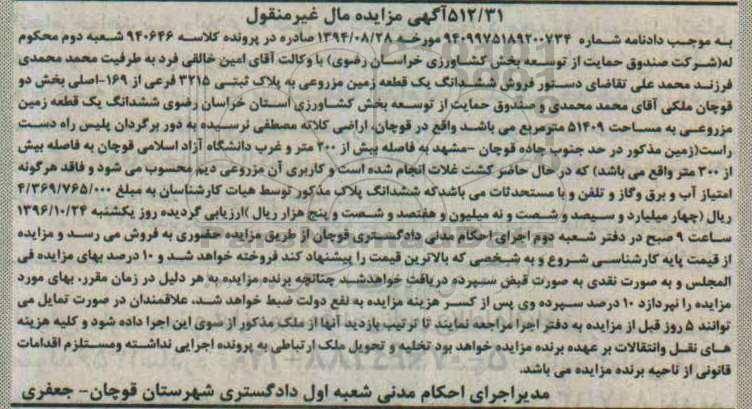 ۵۱۲/۳۱آگهی مزایده مال غیرمنقول
به موجب دادنامه شماره ۹۴۰۹۹۷۵۱۸۹۲۰۰۷۳۴ مورخه ۱۳۹۴/۰۸/۲۸ صادره در پرونده کلاسه ۹۴۰۶۴۶ شعبه دوم محکوم
له(شرکت صندوق حمایت از توسعه بخش کشاورزی خراسان رضوی) با وکالت آقای امین خالقی فرد به طرفیت محمد محمدی
فرزند محمد علی تقاضای دستور فروش ششدانگ یک قطعه زمین مزروعی به پلاک ثبتی ۳۲۱۵ فرعی از ۱۶۹-اصلی بخش دو
قوچان ملکی آقای محمد محمدی و صندوق حمایت از توسعه بخش کشاورزی استان خراسان رضوی ششدانگ یک قطعه زمین
مزروعی به مساحت ۵۱۴۰۹ مترمربع می باشد واقع در قوچان، اراضی کلاته مصطفی نرسیده به دور برگردان پلیس راه دست
راست(زمین مذکور در حد جنوب جاده قوچان -مشهد به فاصله بیش از ۲۰۰ متر و غرب دانشگاه آزاد اسلامی قوچان به فاصله بیش
از ۳۰۰ متر واقع می باشد) که در حال حاضر کشت غلات انجام شده است و کاربری آن مزروعی دیم محسوب می شود و فاقد هرگونه
امتیاز آب و برق وگاز و تلفن و با مستحدثات می باشدکه ششدانگ پلاک مذکور توسط هیات کارشناسان به مبلغ ۴/۳۶۹/۷۶۵/۰۰۰
ریال (چهار میلیارد و سیصد و شصت و نه میلیون و هفتصد و شصت و پنج هزار ریال )ارزیابی گردیده روز یکشنبه ۱۳۹۶/۱۰/۲۴
ساعت ۹ صبح در دفتر شعبه دوم اجرای احکام مدنی دادگستری قوچان از طریق مزایده حضوری به فروش می رسد و مزایده
از قیمت پایه کارشناسی شروع و به شخصی که بالاترین قیمت را پیشنهاد کند فروخته خواهد شد و ۱۰ درصد بهای مزایده فی
المجلس و به صورت نقدی به صورت قبض سپرده دریافت خواهدشد چنانچه برنده مزایده به هر دلیل در زمان مقرر، بهای مورد
مزایده را نپردازد ۱۰ درصد سپرده وی پس از کسر هزینه مزایده به نفع دولت ضبط خواهد شد، علاقمندان در صورت تمایل می
توانند ۵ روز قبل از مزایده به دفتر اجرا مراجعه نمایند تا ترتیب بازدید آنها از ملک مذکور از سوی این اجرا داده شود و کلیه هزینه
های نقل وانتقالات بر عهده برنده مزایده خواهد بود تخلیه و تحویل ملک ارتباطی به پرونده اجرایی نداشته ومستلزم اقدامات
قانونی از ناحیه برنده مزایده می باشد.
مدیراجرای احکام مدنی شعبه اول دادگستری شهرستان قوچان- جعفری